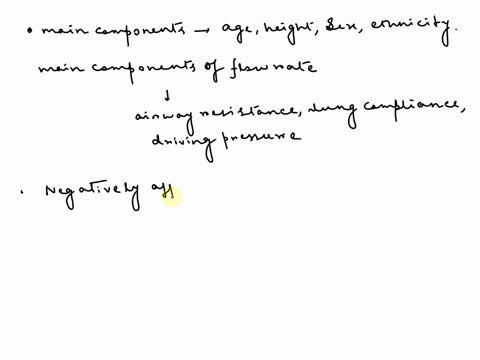 • main components → age, height, Sex, ethnicity.
main components of flow rate
↓
airway resistance, lung compliance,
driving pressure
• Negatively aff